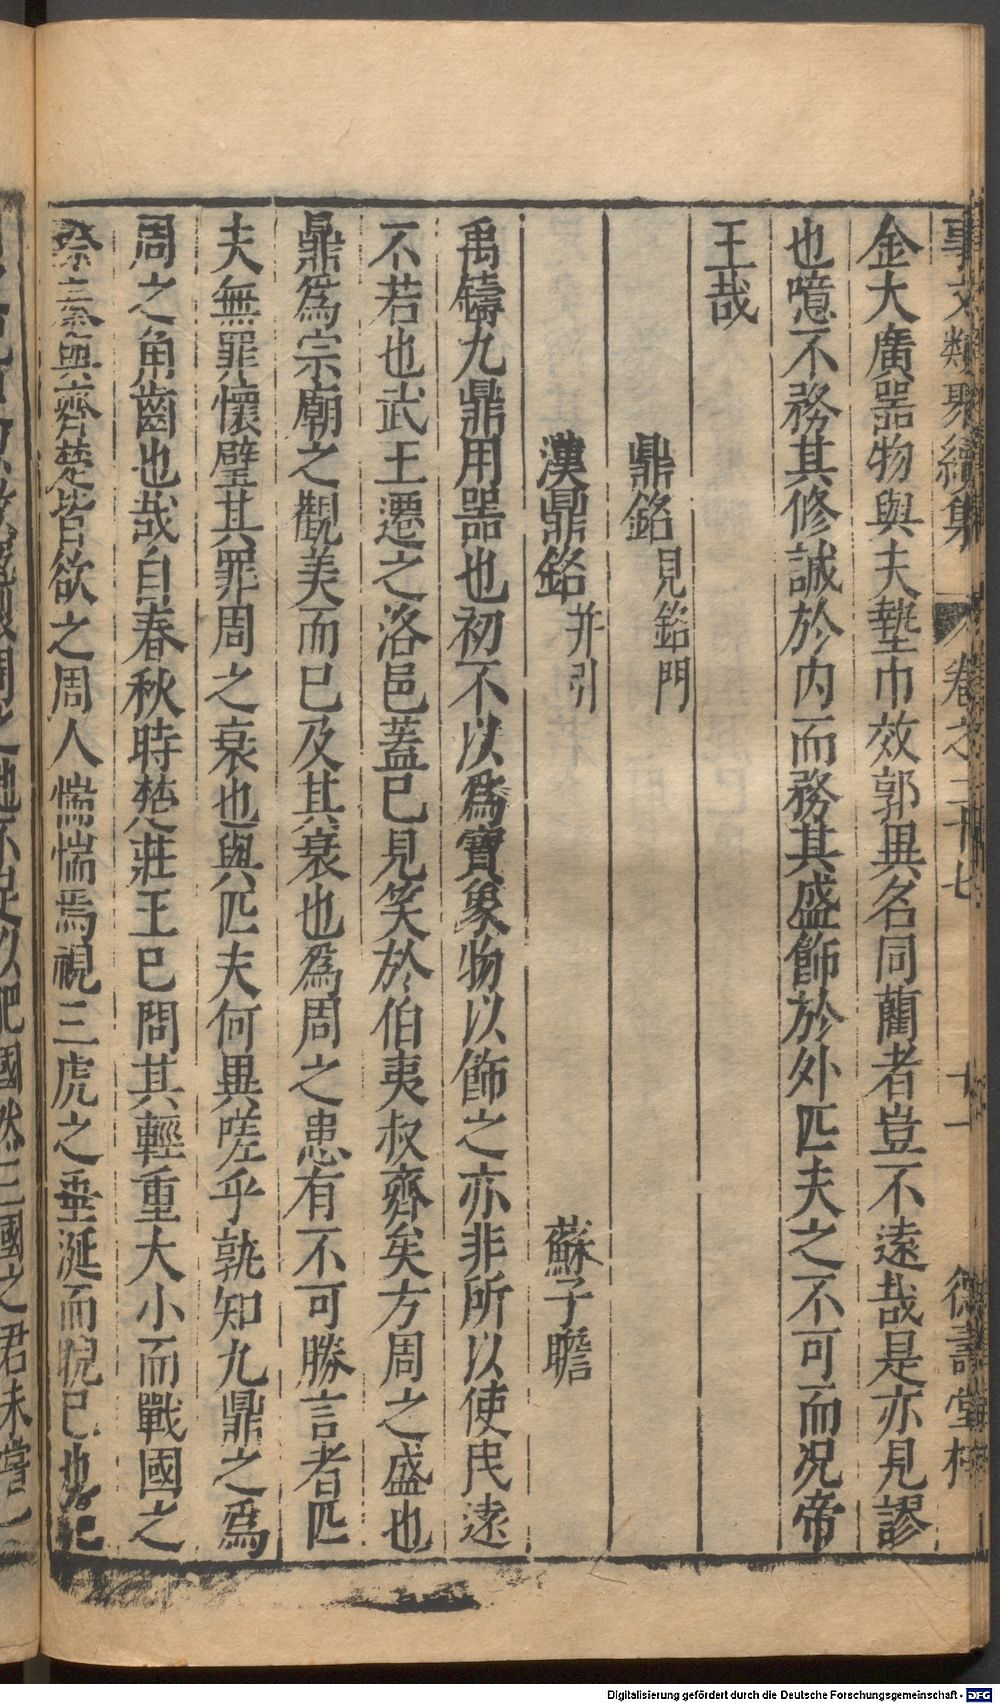 事文類聚續集 卷之二十七 十一 德壽堂梓
金大廣器物與夫墊巾效郭異名同藺者豈不遠哉是亦見謬
也噫不務其修誠於内而務其盛飾於外匹夫之不可而况帝
王哉
鼎銘見銘門
漢鼎銘并引 蘇子瞻
禹鑄九鼎用器也初不以爲寶象物以飾之亦非所以使民遠
不若也武王遷之洛邑蓋已見笑於伯夷叔齊矣方周之盛也
鼎爲宗廟之觀美而已及其衰也爲周之患有不可勝言者匹
夫無罪懷璧其罪周之衰也與匹夫何異嗟乎孰知九鼎之爲
周之角齒也哉自春秋時楚莊王已問其輕重大小而戰國之
秦與齊楚皆欲之周人惴惴焉視三虎之垂涎而睨已也
地不足以肥國然三國之君未嘗
Digitalisierung gefördert durch die Deutsche Forschungsgemeinschaft - DFG